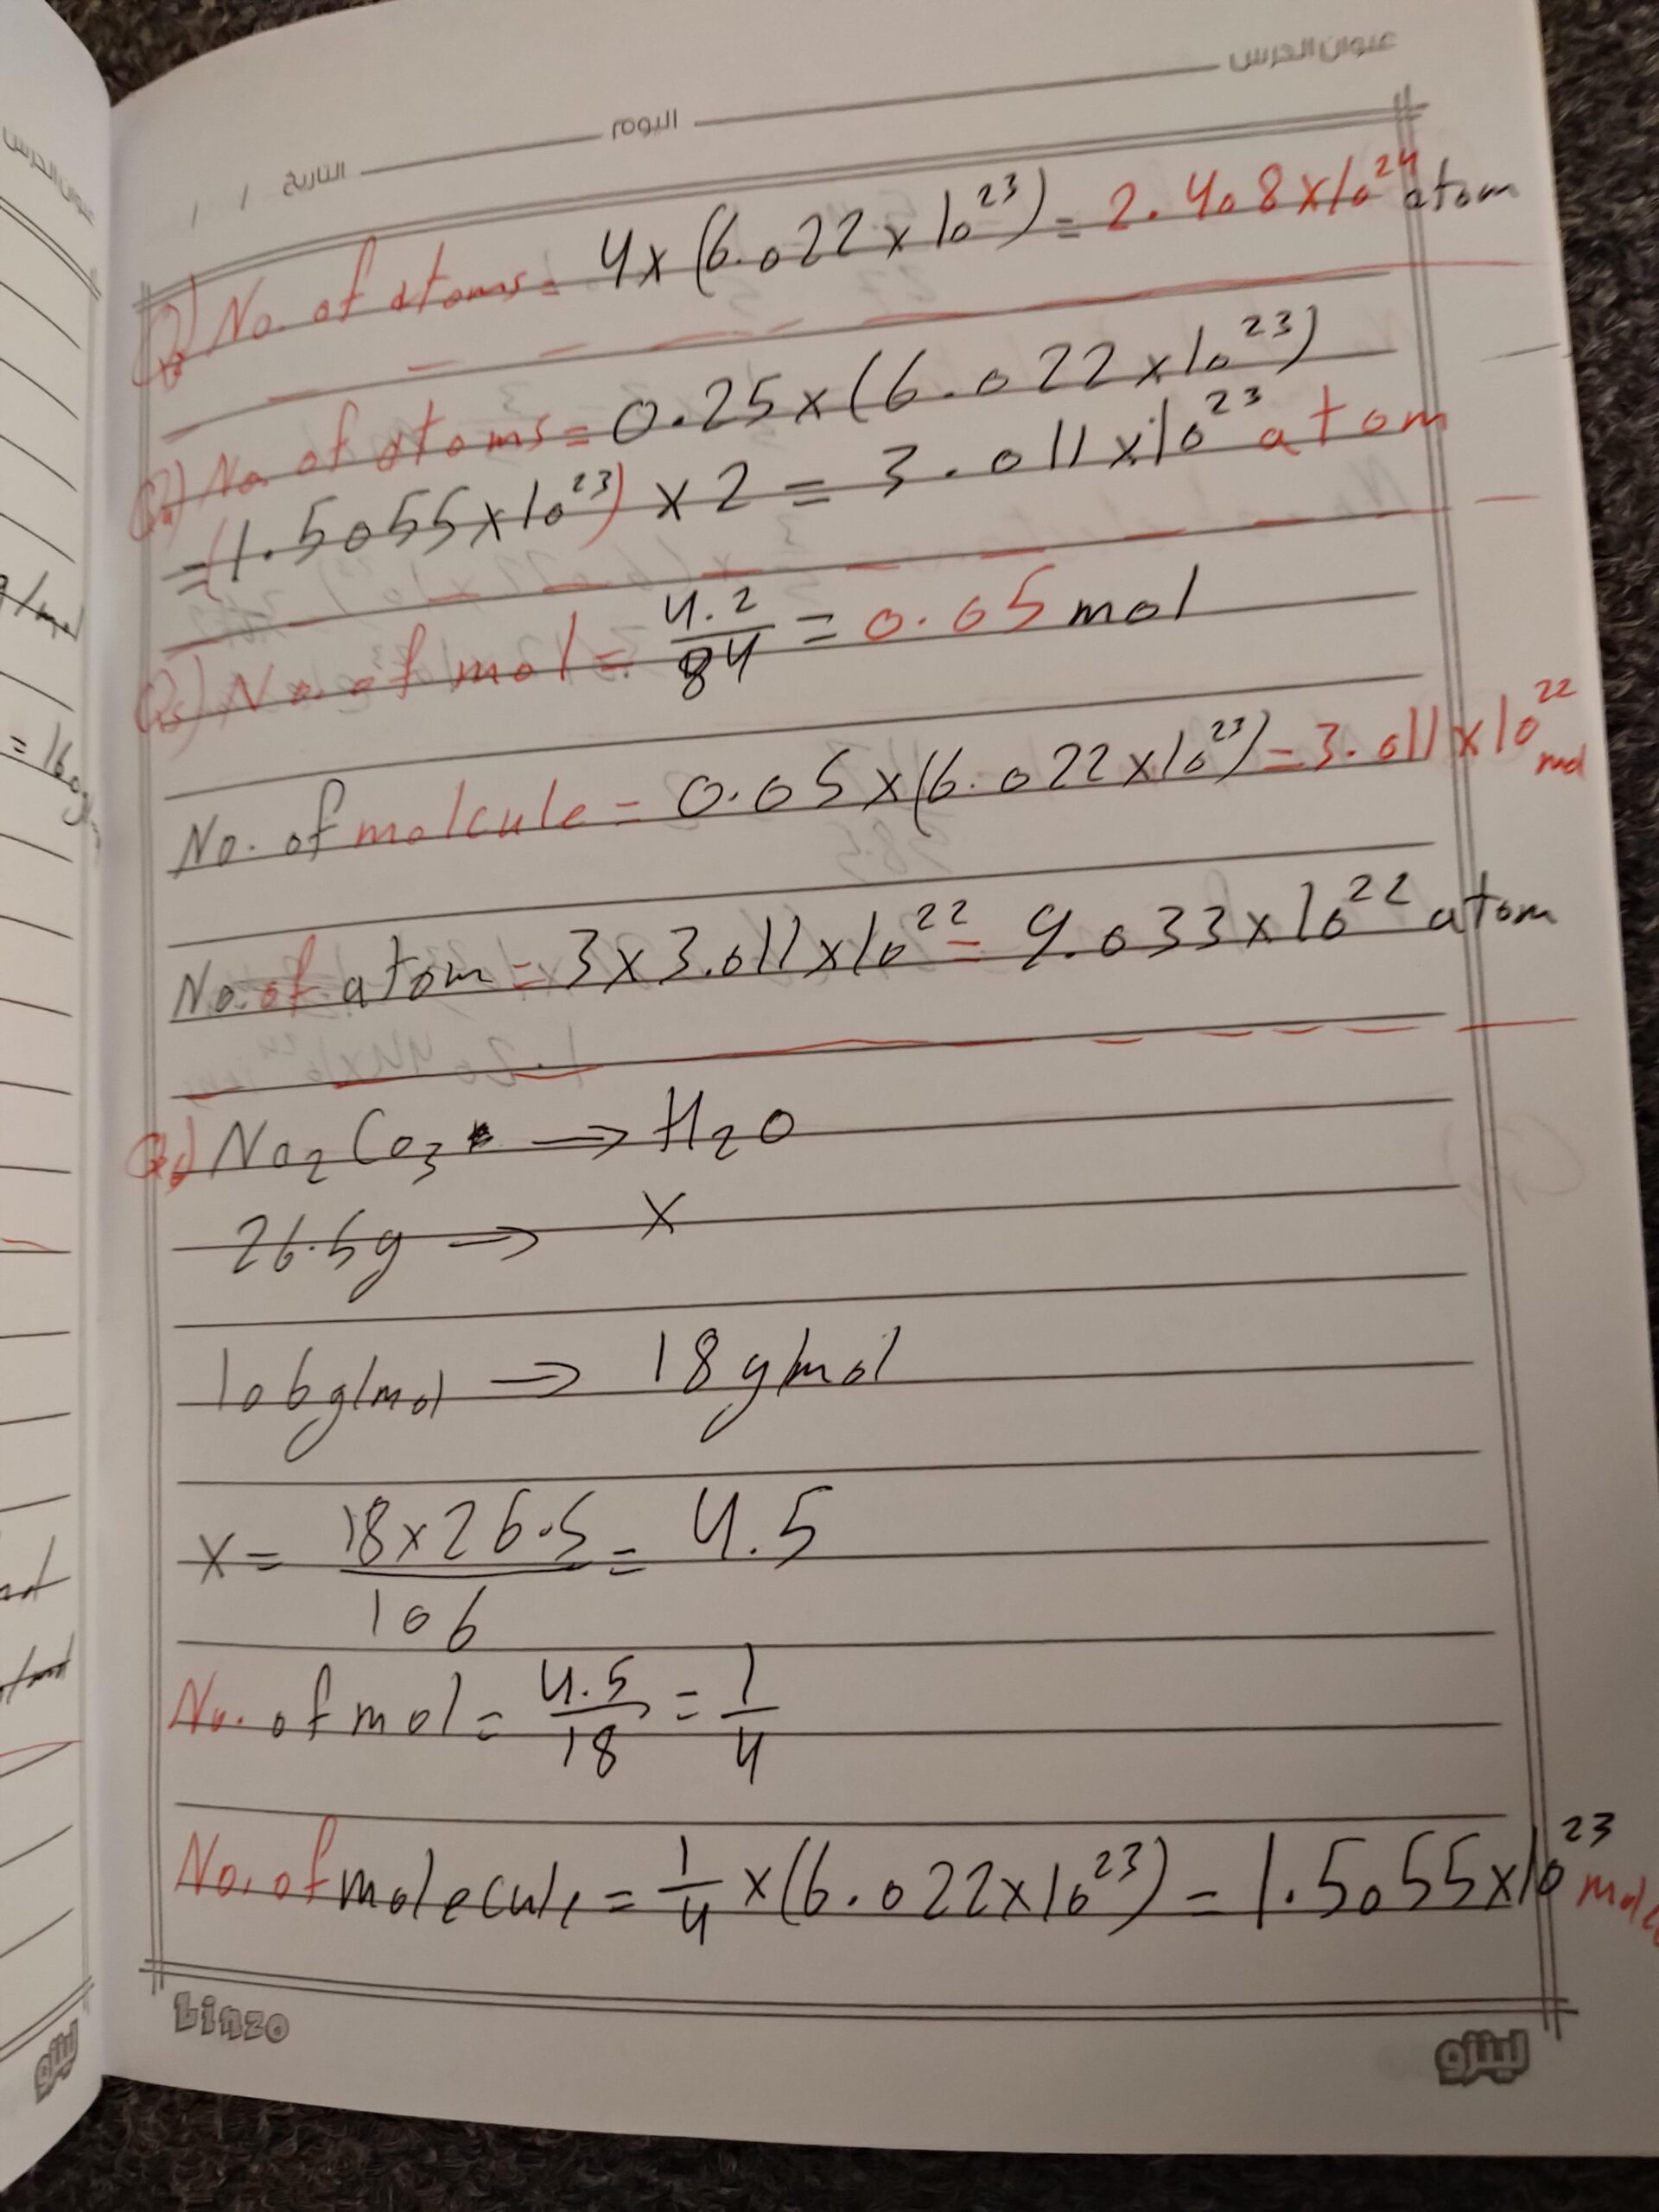 عنوان الدرس
اليوم
التاريخ / /
No. of atoms = 4 x (6.022 x 10²³) = 2.408 x 10²⁴ atom
No. of atoms = 0.25 x (6.022 x 10²³)
= (1.5055 x 10²³) x 2 = 3.011 x 10²³ atom
No. of mol = 4.2/84 = 0.05 mol
No. of molcule = 0.05 x (6.022 x 10²³) = 3.011 x 10²² mol
No. of atom = 3 x 3.011 x 10²² = 9.033 x 10²² atom
Na₂Co₃ → H₂O
26.5g → x
106 g/mol → 18 g/mol
x = 18 x 26.5 / 106 = 4.5
No. of mol = 4.5/18 = 1/4
No. of molecule = 1/4 x (6.022 x 10²³) = 1.5055 x 10²³
Linzo
لينزو